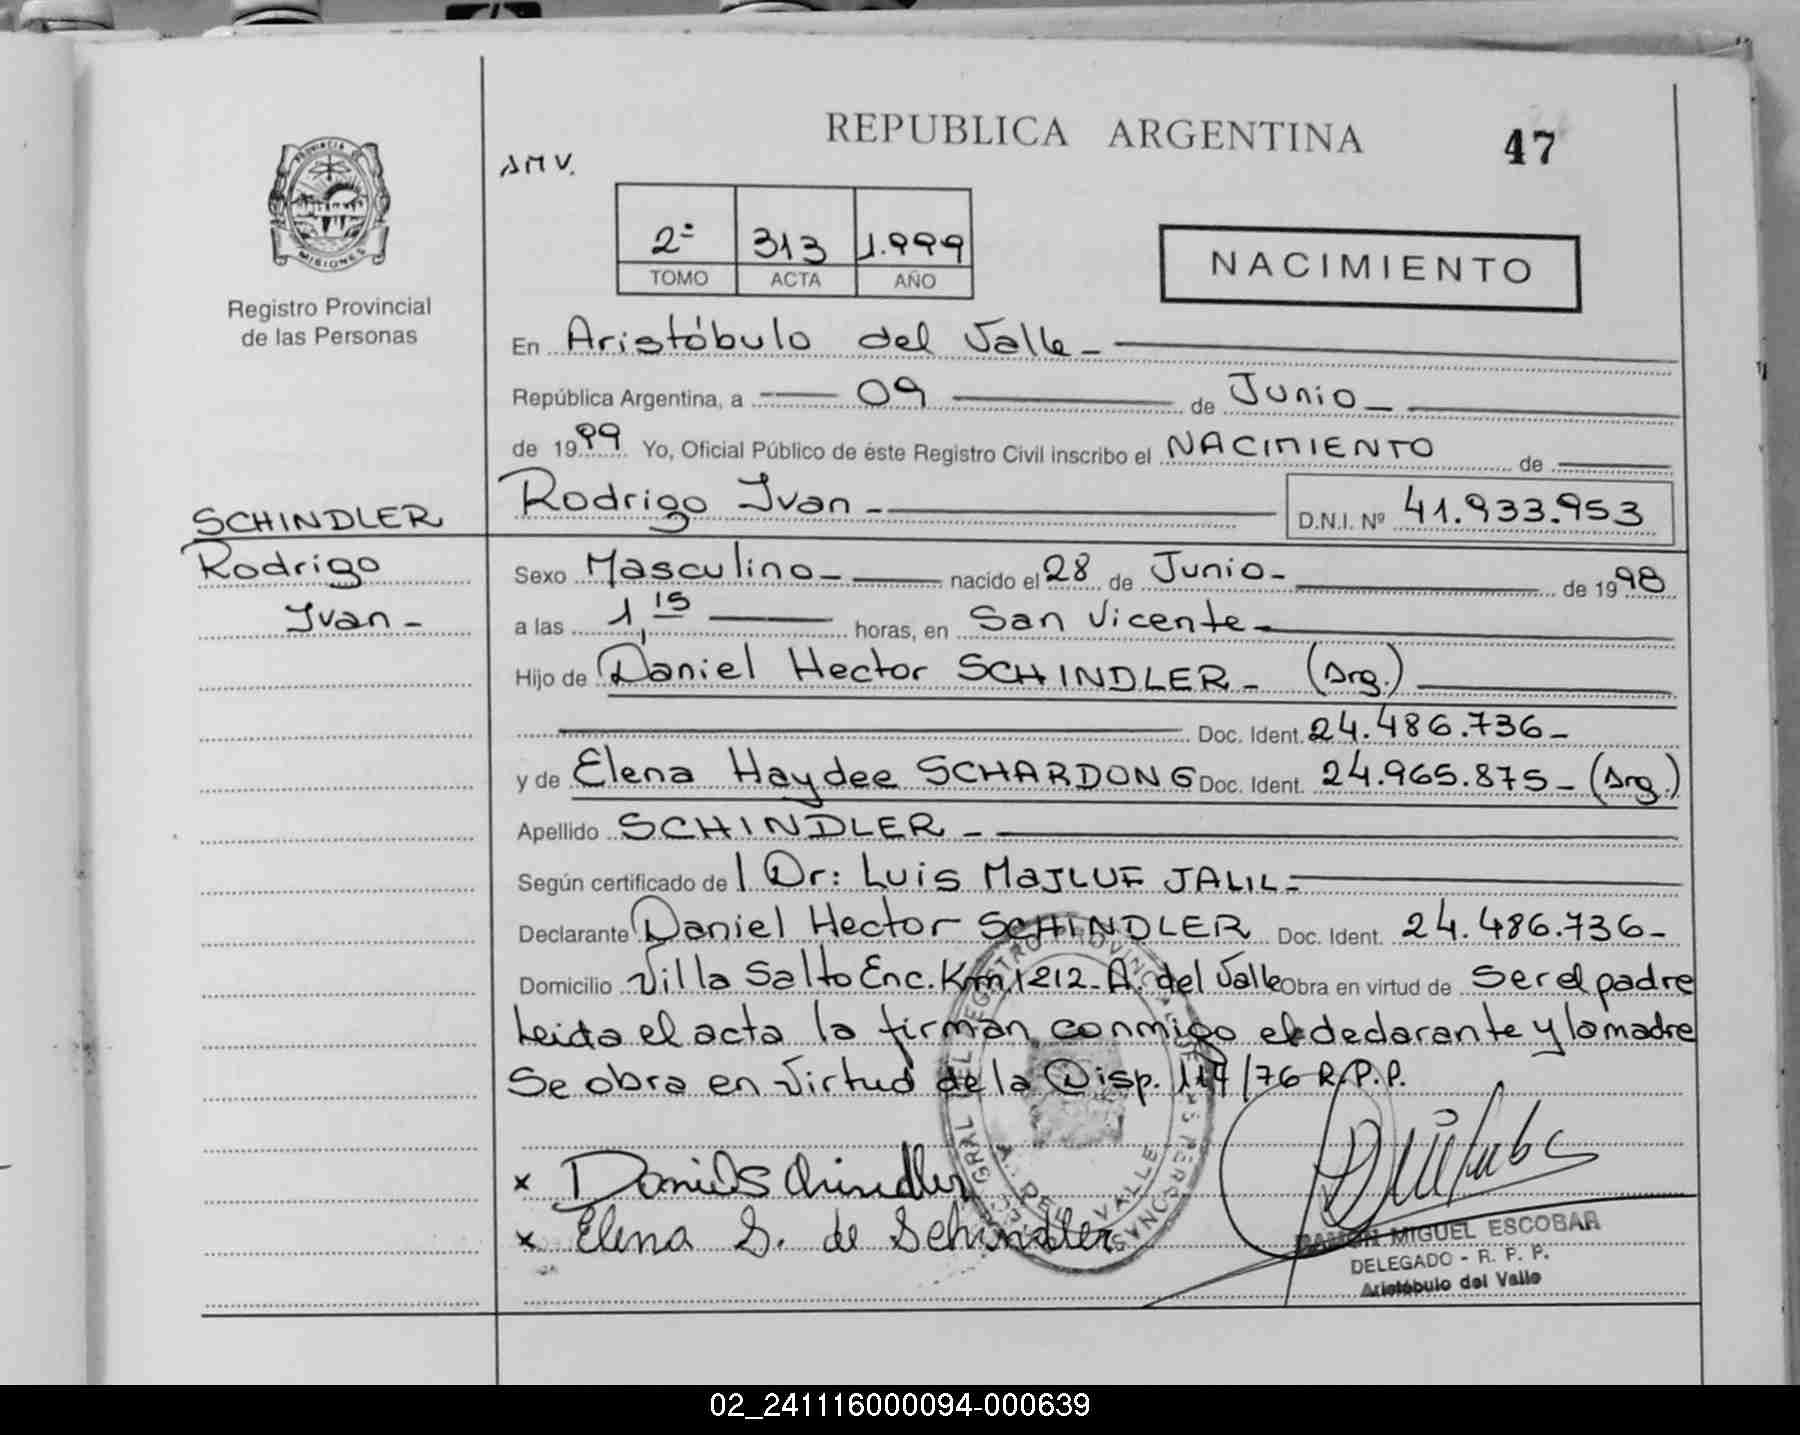 REPUBLICA ARGENTINA
47
AMV.
PROVINCIA DE
MISIONES
Registro Provincial
de las Personas
2º 313 1.999
TOMO ACTA AÑO
NACIMIENTO
En Aristóbulo del Valle -
República Argentina, a 09 de Junio -
de 1999 Yo, Oficial Público de éste Registro Civil inscribo el NACIMIENTO de
Rodrigo Ivan - D.N.I. Nº 41.933.953
SCHINDLER
Rodrigo
Ivan -
Sexo Masculino - nacido el 28 de Junio - de 1998
a las 1,15 horas, en San Vicente -
Hijo de Daniel Hector SCHINDLER - (Arg.)
Doc. Ident. 24.486.736 -
y de Elena Haydee SCHARDONG Doc. Ident. 24.965.875 - (Arg.)
Apellido SCHINDLER -
Según certificado del Dr: Luis MAJLUF JALIL -
Declarante Daniel Hector SCHINDLER Doc. Ident. 24.486.736 -
Domicilio Villa Salto Enc. Km. 1212 - A. del Valle Obra en virtud de Ser el padre
Leida el acta la firman conmigo el declarante y la madre
Se obra en virtud de la Disp. 117/76 R.P.P.
x Daniel Schindler
x Elena S. de Schindler
RAMON MIGUEL ESCOBAR
DELEGADO - R. P. P.
Aristóbulo del Valle
02_241116000094-000639